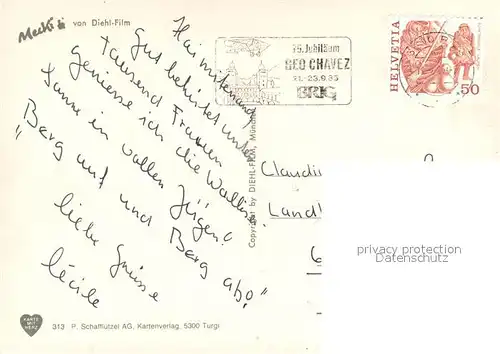 Mecki von Diehl-Film
Hai mitenand
Gut behütet unter
tausend Frauen
geniesse ich die Walliser
Sonne in vollen Zügen!
"Berg auf und Berg ab!"
liebe Grüsse
Cécile
75. Jubiläum
GEO CHAVEZ
21.-23.9.85
BRIG
HELVETIA
50
Copyright by DIEHL-FILM, München
Claudi
Landl
6
privacy protection
Privatsphärenschutz
KARTE MIT HERZ
313 P. Schafflützel AG, Kartenverlag, 5300 Turgi